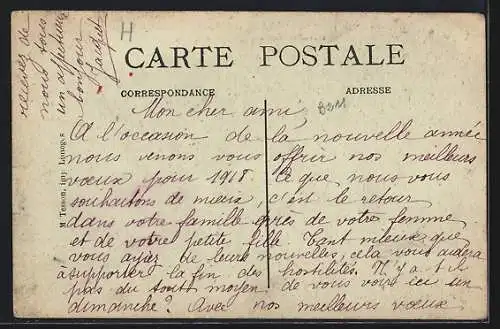 CARTE POSTALE
CORRESPONDANCE
ADRESSE
Mon cher ami
A l'occasion de la nouvelle année
nous venons vous offrir nos meilleurs
vœux pour 1918. Ce que nous vous
souhaitons de mieux, c'est le retour
dans votre famille près de votre femme
et de votre petite fille. Tant mieux que
vous ayez de leurs nouvelles, cela vous aidera
à supporter la fin des hostilités. N'y a t il
pas du tout moyen de vous voir ici un
dimanche? Avec nos meilleurs vœux
recevez de
nous tous
un affectueux
bonjour
M Tesson, imp Limoges
H